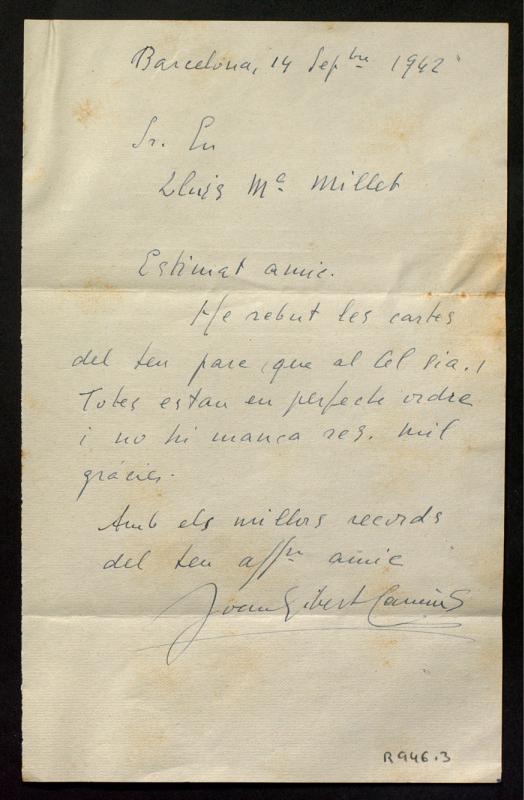 Barcelona, 14 Sepbre 1942
Sr. En
Lluis Mª Millet
Estimat amic.
He rebut les cartes
del teu pare (que al Cel sia.)
Totes estan en perfecte ordre
i no hi manca res. Mil
gràcies.
Amb els millors records
del teu affm amic
Joan Gibert Camins
R 946.3